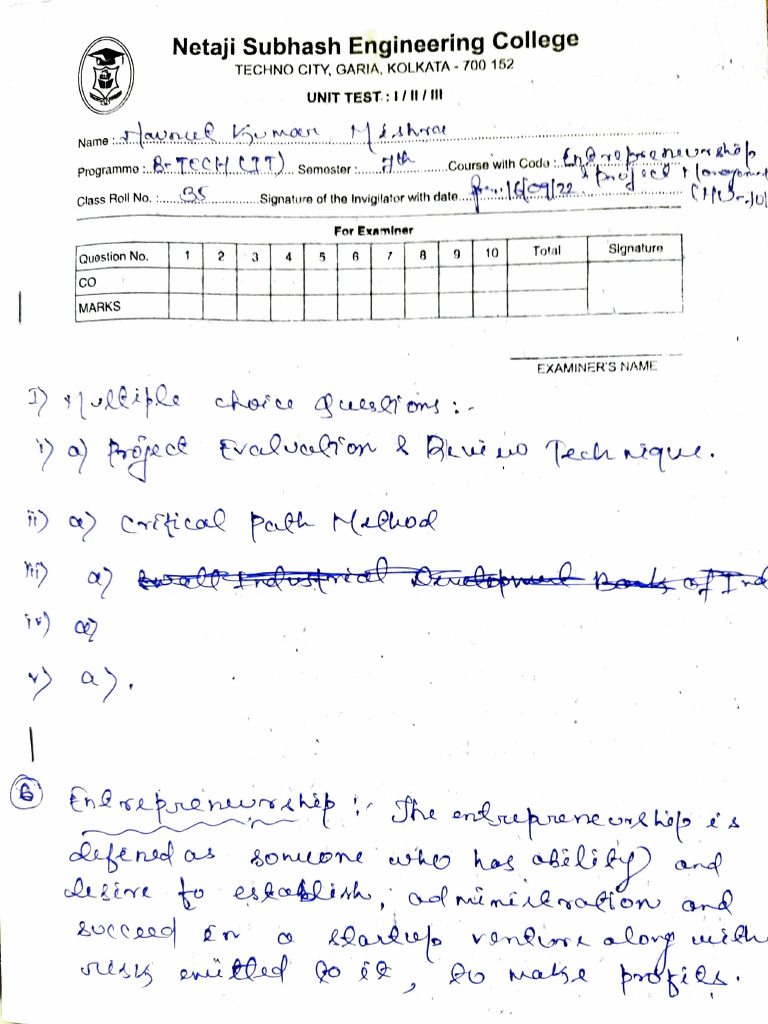 Netaji Subhash Engineering College
TECHNO CITY, GARIA, KOLKATA - 700 152
UNIT TEST : I / II / III
Name : Kumar Mishra
Programme : B-TECH (IT) Semester : 7th Course with Code : Entrepreneurship
& Project Management
Class Roll No. : 35 Signature of the Invigilator with date 16/09/22
For Examiner
Question No. 1 2 3 4 5 6 7 8 9 10 Total Signature
CO
MARKS
EXAMINER'S NAME
I) Multiple choice Questions :-
i) a) Project Evaluation & Review Technique.
ii) a) Critical Path Method
iii) a) Small Industrial Development Bank of Ind
iv) a)
v) a).
6 Entrepreneurship :- The entrepreneurship is
defined as someone who has ability) and
desire to establish, administration and
succeed in a startup venture along with
risk entitled to it, to make profits.